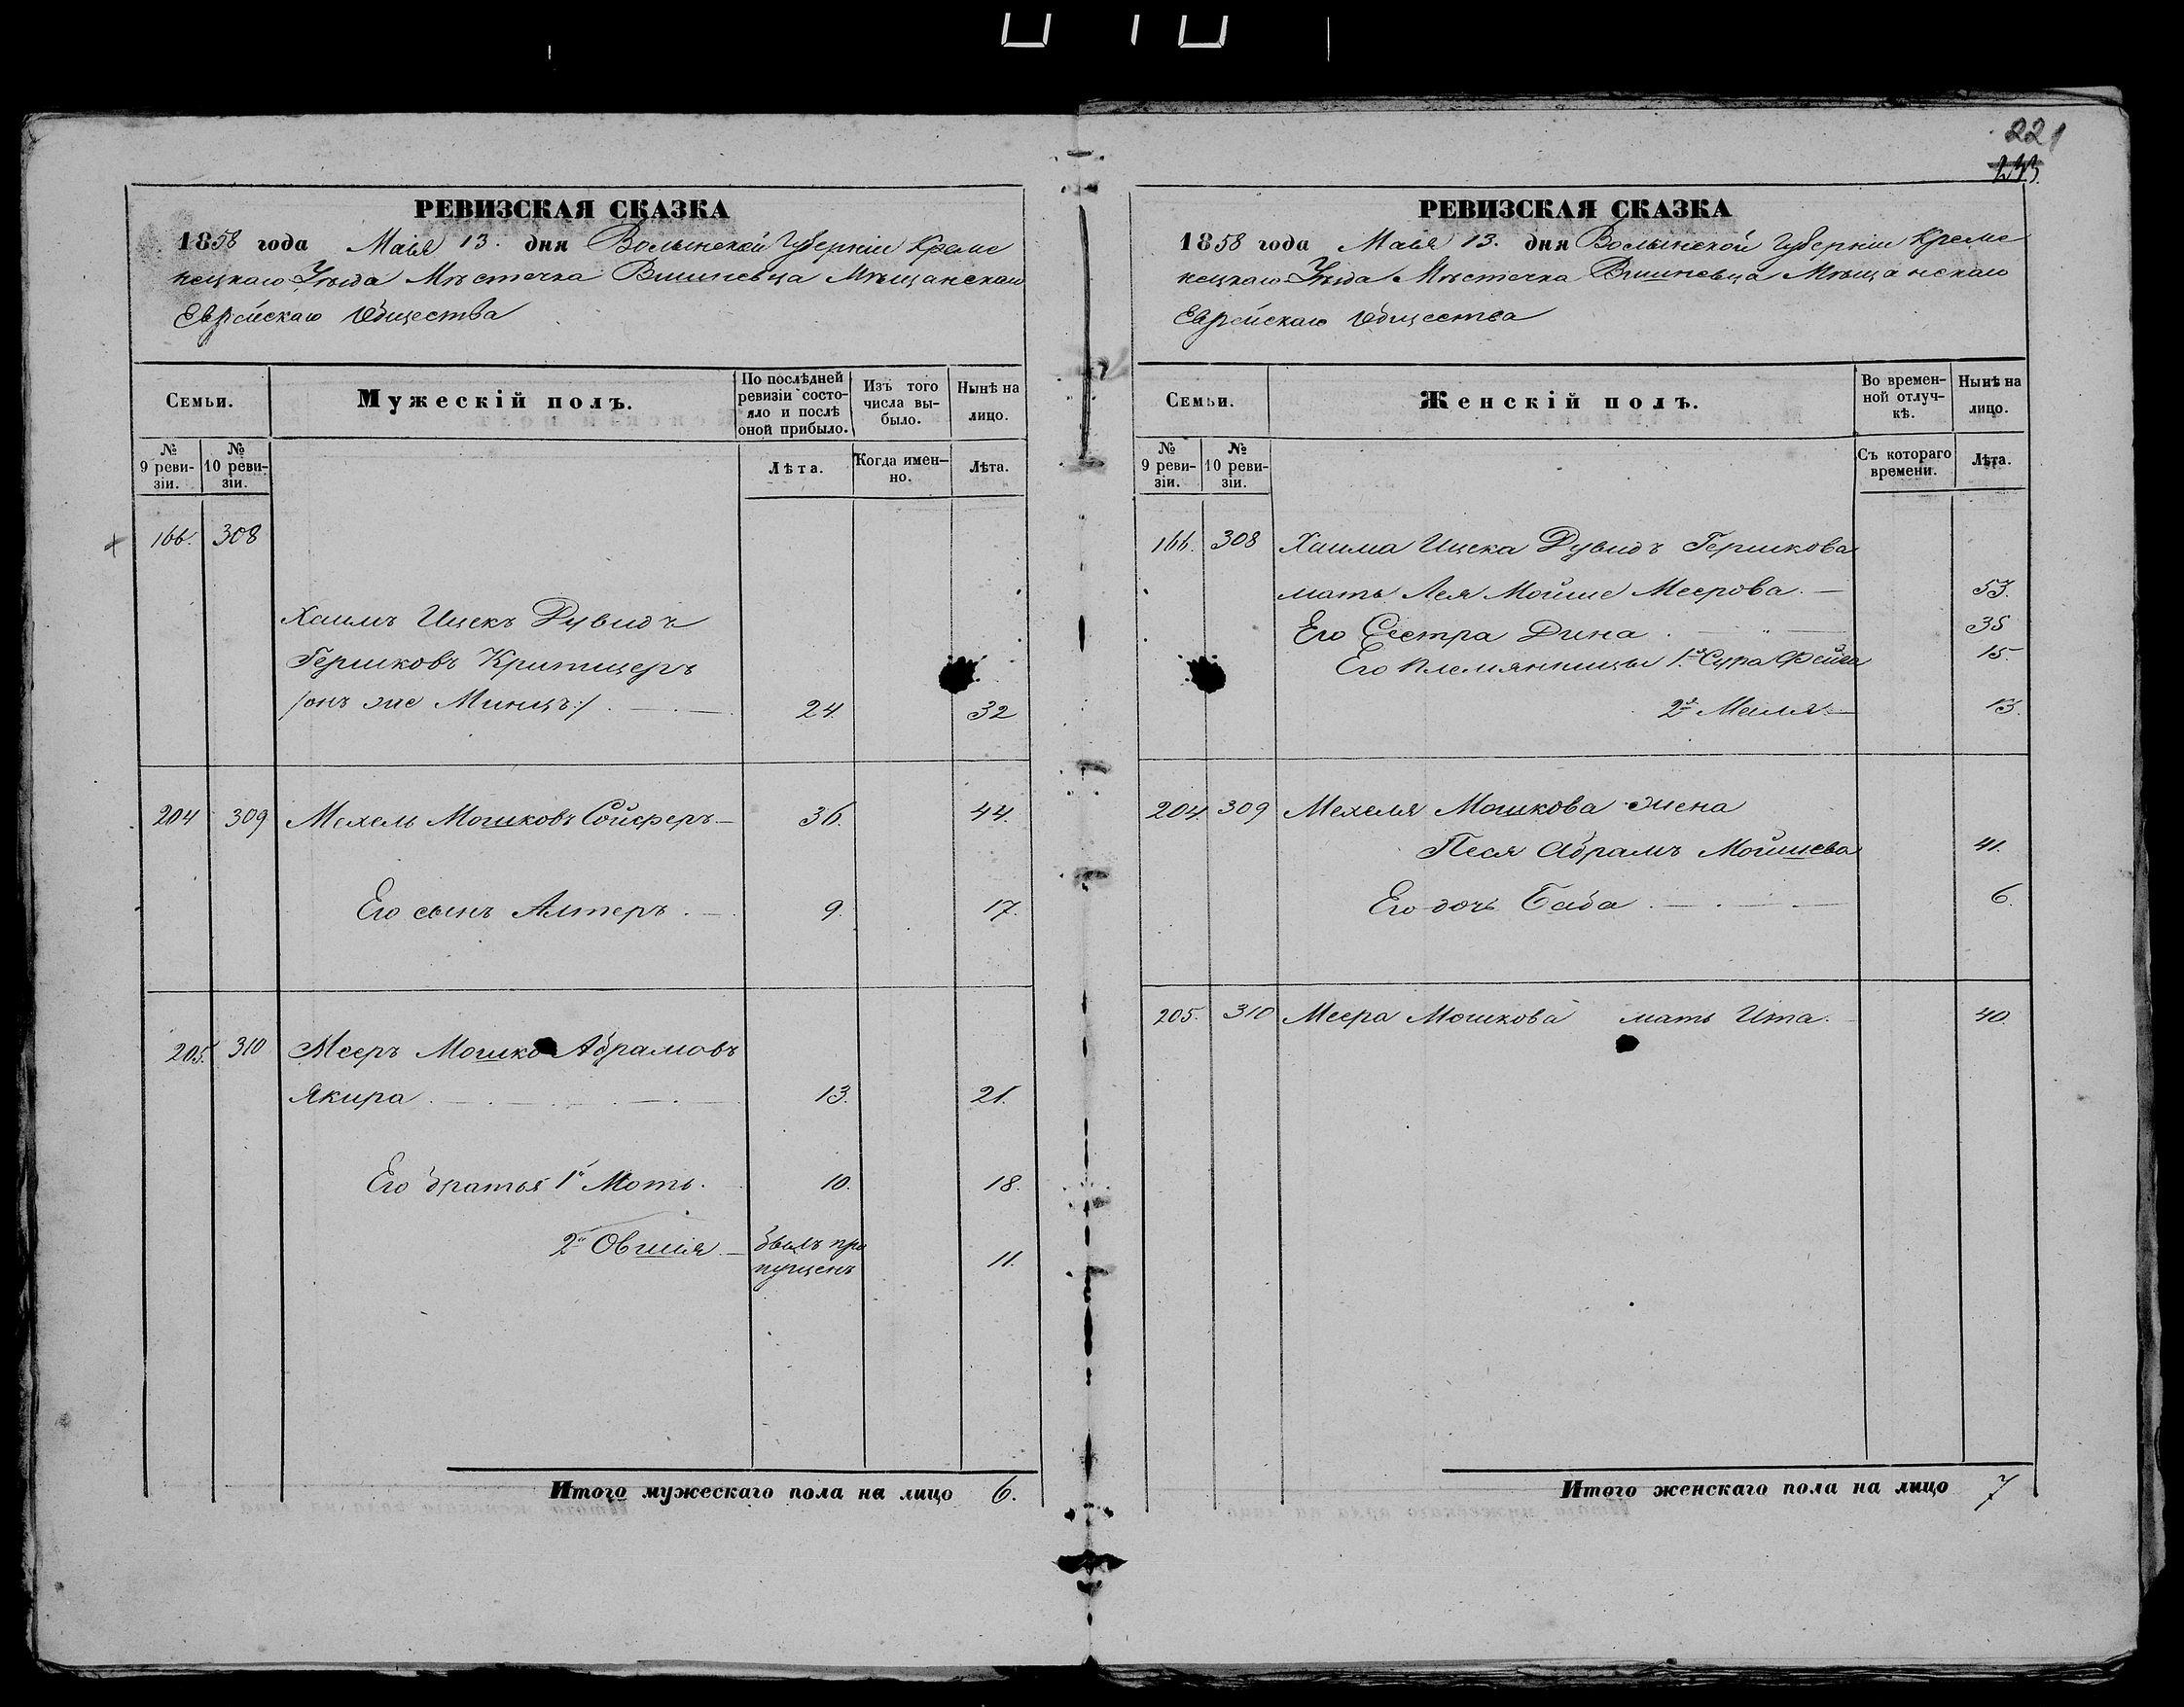 221
РЕВИЗСКАЯ СКАЗКА
1858 года Маія 13. дня Волынской Губерніи Креме
нецкаго Уѣзда Мѣстечка Вишневца Мѣщанскаго
Еврейскаго Общества
Семьи.
Мужескій полъ.
По послѣдней ревизіи состояло и послѣ оной прибыло.
Изъ того числа выбыло.
Нынѣ на лицо.
№ 9 ревизіи.
№ 10 ревизіи.
Лѣта.
Когда именно.
Лѣта.
166. 308
Хаимъ Ицекъ Дувидъ
Гершковъ Критцеръ
/онъ же Минцъ:/ 24. 32
204 309 Мехель Мошковъ Сойферъ 36. 44.
Его сынъ Алтеръ 9. 17.
205. 310 Мееръ Мошко Абрамовъ
Якира 13. 21.
Его братья 1й Моть. 10. 18.
2й Овшія был про
пущенъ 11.
Итого мужескаго пола на лицо 6.
РЕВИЗСКАЯ СКАЗКА
1858 года Маія 13. дня Волынской Губерніи Креме
нецкаго Уѣзда Мѣстечка Вишневца Мѣщанскаго
Еврейскаго Общества
Семьи.
Женскій полъ.
Во временной отлучкѣ.
Нынѣ на лицо.
№ 9 ревизіи.
№ 10 ревизіи.
Съ котораго времени.
Лѣта.
166. 308 Хаима Ицека Дувидъ Гершкова
мать Лея Мойше Меерова 53.
Его Сестра Дина 35
Его племянницы 1я Сура Фейга 15.
2я Маля 13.
204. 309 Мехеля Мошкова жена
Песя Абрамъ Мойшева 41.
Его дочь Баба 6.
205. 310 Меера Мошкова мать Ита. 40.
Итого женскаго пола на лицо 7